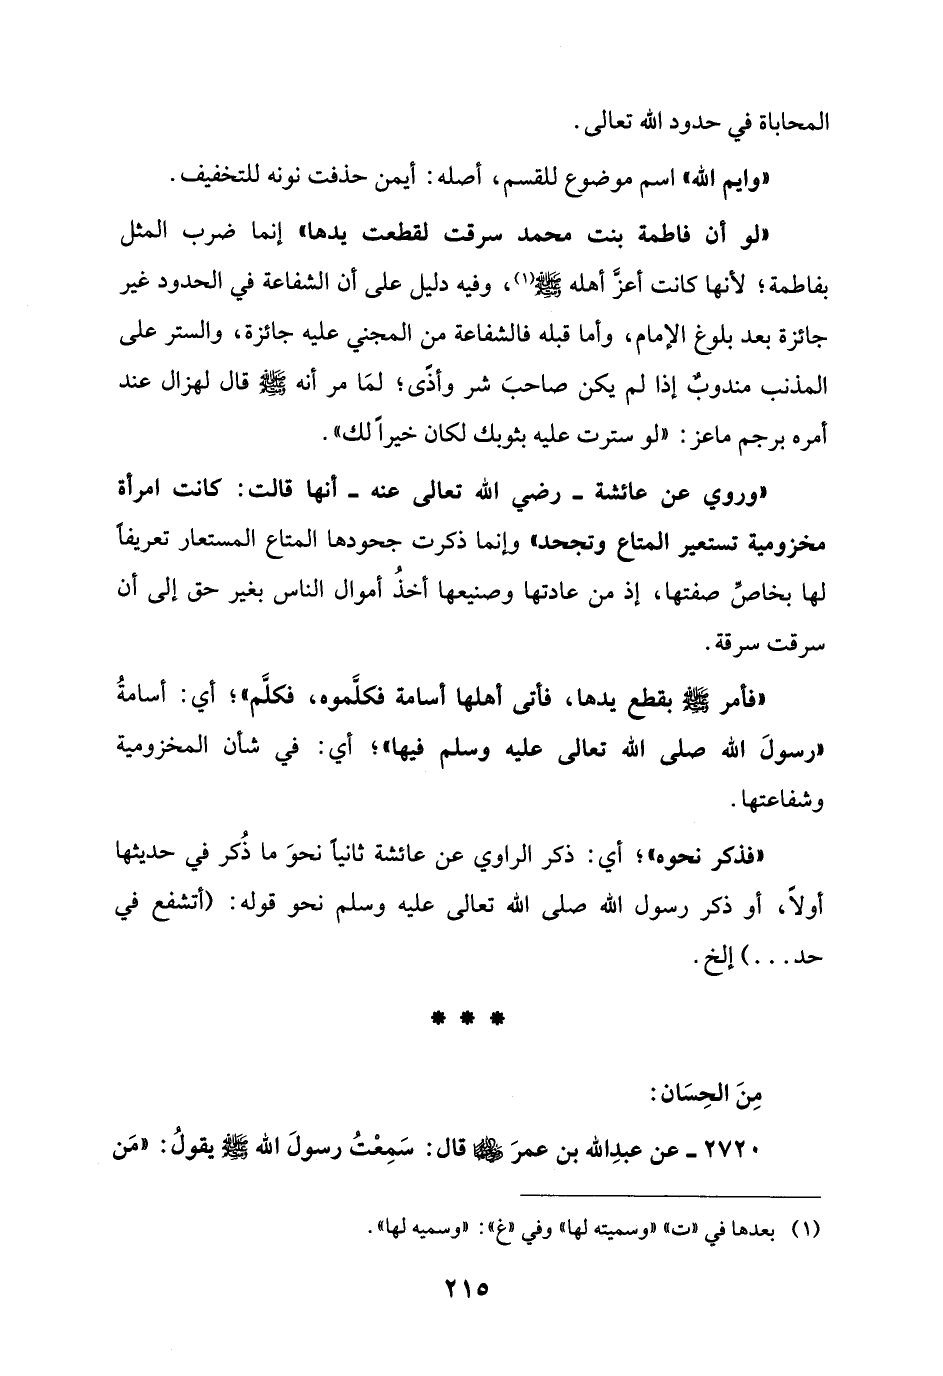 المحاباة في حدود الله تعالى.
«وايم الله» اسم موضوع للقسم، أصله: أيمن حذفت نونه للتخفيف.
«لو أن فاطمة بنت محمد سرقت لقطعت يدها» إنما ضرب المثل
بفاطمة؛ لأنها كانت أعزَّ أهله ﷺ(١)، وفيه دليل على أن الشفاعة في الحدود غير
جائزة بعد بلوغ الإمام، وأما قبله فالشفاعة من المجني عليه جائزة، والستر على
المذنب مندوبٌ إذا لم يكن صاحبَ شر وأذًى؛ لمَا مر أنه ﷺ قال لهزال عند
أمره برجم ماعز: «لو سترت عليه بثوبك لكان خيراً لك».
«وروي عن عائشة ـ رضي الله تعالى عنه ـ أنها قالت: كانت امرأة
مخزومية تستعير المتاع وتجحد» وإنما ذكرت جحودها المتاع المستعار تعريفاً
لها بخاصِّ صفتها، إذ من عادتها وصنيعها أخذُ أموال الناس بغير حق إلى أن
سرقت سرقة.
«فأمر ﷺ بقطع يدها، فأتى أهلها أسامة فكلَّموه، فكلَّم»؛ أي: أسامةُ
«رسولَ الله صلى الله تعالى عليه وسلم فيها»؛ أي: في شأن المخزومية
وشفاعتها.
«فذكر نحوه»؛ أي: ذكر الراوي عن عائشة ثانياً نحوَ ما ذُكر في حديثها
أولاً، أو ذكر رسول الله صلى الله تعالى عليه وسلم نحو قوله: (أتشفع في
حد...) إلخ.
* * *
مِنَ الحِسَان:
٢٧٢٠ ـ عن عبدِالله بن عمرَ ﷺ قال: سَمِعْتُ رسولَ الله ﷺ يقولُ: «مَن
(١) بعدها في «ت» «وسميته لها» وفي «غ»: «وسميه لها».
٢١٥